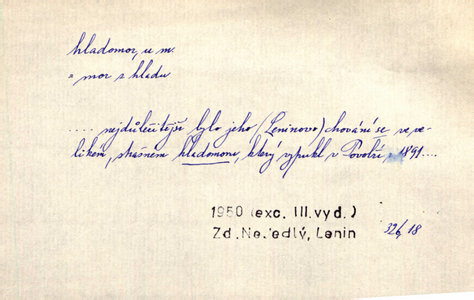 hladomor, u m.
= mor z hladu
.... nejdůležitější bylo jeho (Leninovo) chování se ve ve-
likém, strašném hladomoru, který vypukl v Povolží r. 1891....
1950 (exc. III.vyd.)
Zd. Nejedlý, Lenin 326/18